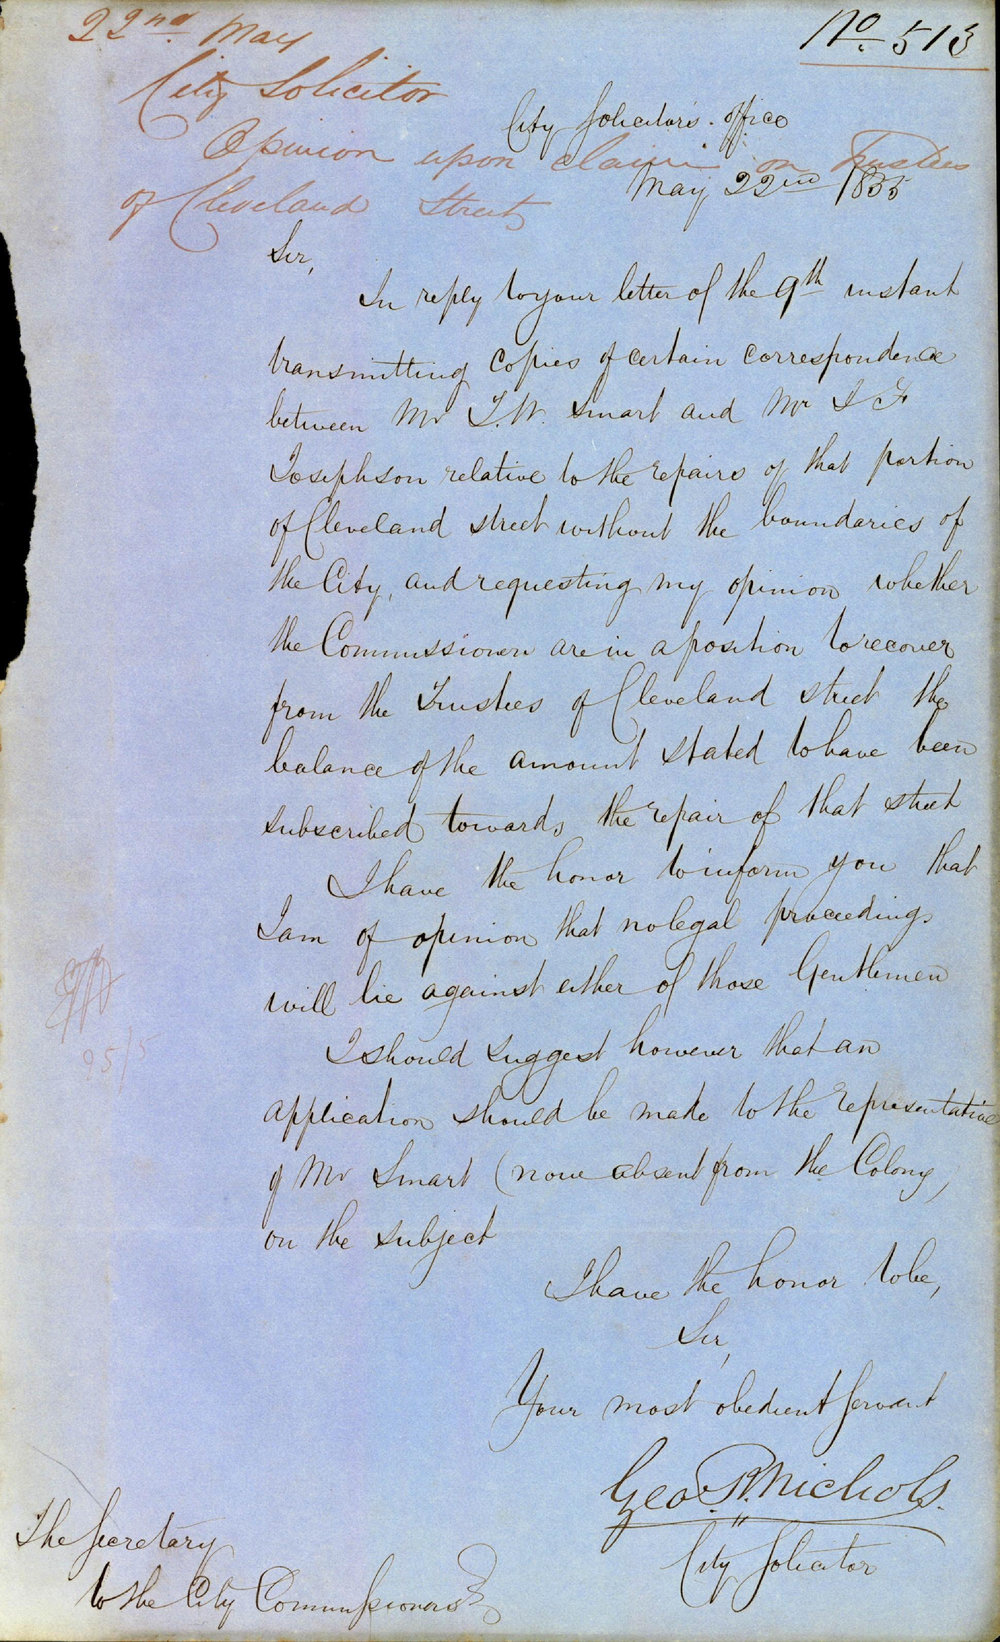 22nd May
No. 513
City Solicitor
City Solicitor's office
Opinion upon claim on Trustees
May 22nd 1855
of Cleveland Street
Sir,
In reply to your letter of the 9th instant
transmitting copies of certain correspondence
between Mr T. W. Smart and Mr J F
Josephson relative to the repairs of that portion
of Cleveland street without the boundaries of
the City, and requesting my opinion whether
the Commissioners are in a position to recover
from the Trustees of Cleveland street the
balance of the amount stated to have been
subscribed towards the repair of that street
I have the honor to inform you that
I am of opinion that no legal proceedings
will lie against either of those Gentlemen
I should suggest however that an
application should be made to the representative
of Mr Smart (now absent from the Colony)
on the subject
I have the honor to be,
Sir,
Your most obedient Servant
Geo. R. Nichols.
City Solicitor
The Secretary
to the City Commissioners
25/5